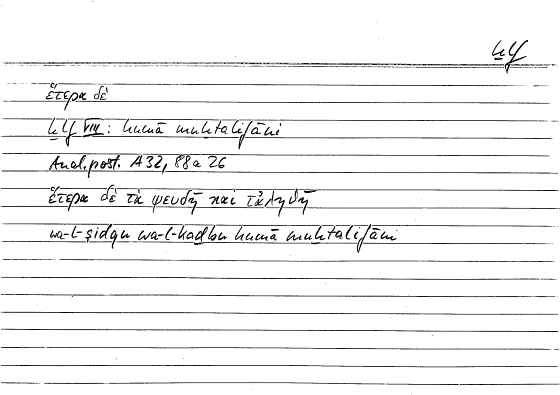 ẖlf
ἕτερα δὲ
ẖlf VIII: humā muẖtalifāni
Anal. post. A 32, 88a 26
ἕτερα δὲ τὰ ψευδῆ καὶ τἀληθῆ
wa-l-ṣidqu wa-l-kaḏbu humā muẖtalifāni